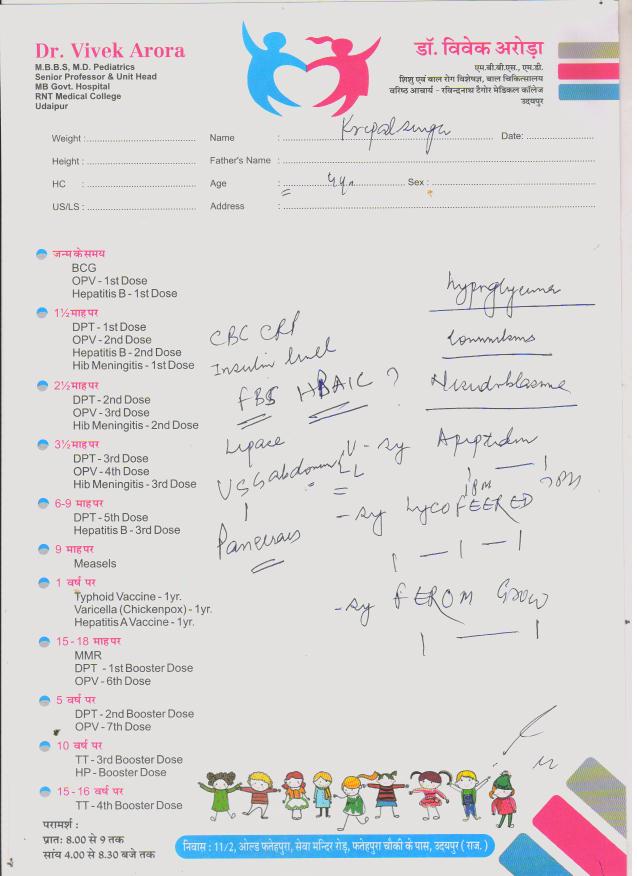 Dr. Vivek Arora
M.B.B.S, M.D. Pediatrics
Senior Professor & Unit Head
MB Govt. Hospital
RNT Medical College
Udaipur
डॉ. विवेक अरोड़ा
एम.बी.बी.एस., एम.डी.
शिशु एवं बाल रोग विशेषज्ञ, बाल चिकित्सालय
वरिष्ठ आचार्य - रविन्द्रनाथ टैगोर मेडिकल कॉलेज
उदयपुर
Weight : Name : Kripalsingh Date:
Height : Father's Name :
HC : Age : Sex :
US/LS : Address :
जन्म के समय
BCG
OPV - 1st Dose
Hepatitis B - 1st Dose
1½ माह पर
DPT - 1st Dose
OPV - 2nd Dose
Hepatitis B - 2nd Dose
Hib Meningitis - 1st Dose
2½ माह पर
DPT - 2nd Dose
OPV - 3rd Dose
Hib Meningitis - 2nd Dose
3½ माह पर
DPT - 3rd Dose
OPV - 4th Dose
Hib Meningitis - 3rd Dose
6-9 माह पर
DPT - 5th Dose
Hepatitis B - 3rd Dose
9 माह पर
Measels
1 वर्ष पर
Typhoid Vaccine - 1yr.
Varicella (Chickenpox) - 1yr.
Hepatitis A Vaccine - 1yr.
15-18 माह पर
MMR
DPT - 1st Booster Dose
OPV - 6th Dose
5 वर्ष पर
DPT - 2nd Booster Dose
OPV - 7th Dose
10 वर्ष पर
TT - 3rd Booster Dose
HP - Booster Dose
15-16 वर्ष पर
TT - 4th Booster Dose
CBC CRP
Insulin level
FBS HBA1C ?
Lipase
USG abdomen
Pancreas
- sy
- sy Lyco FEERED
1 — 1 — 1
- sy FEROM Grow
1 — 1
परामर्श :
प्रात: 8.00 से 9 तक
सांय 4.00 से 8.30 बजे तक
निवास : 11/2, ओल्ड फतेहपुरा, सेवा मन्दिर रोड़, फतेहपुरा चौकी के पास, उदयपुर ( राज. )